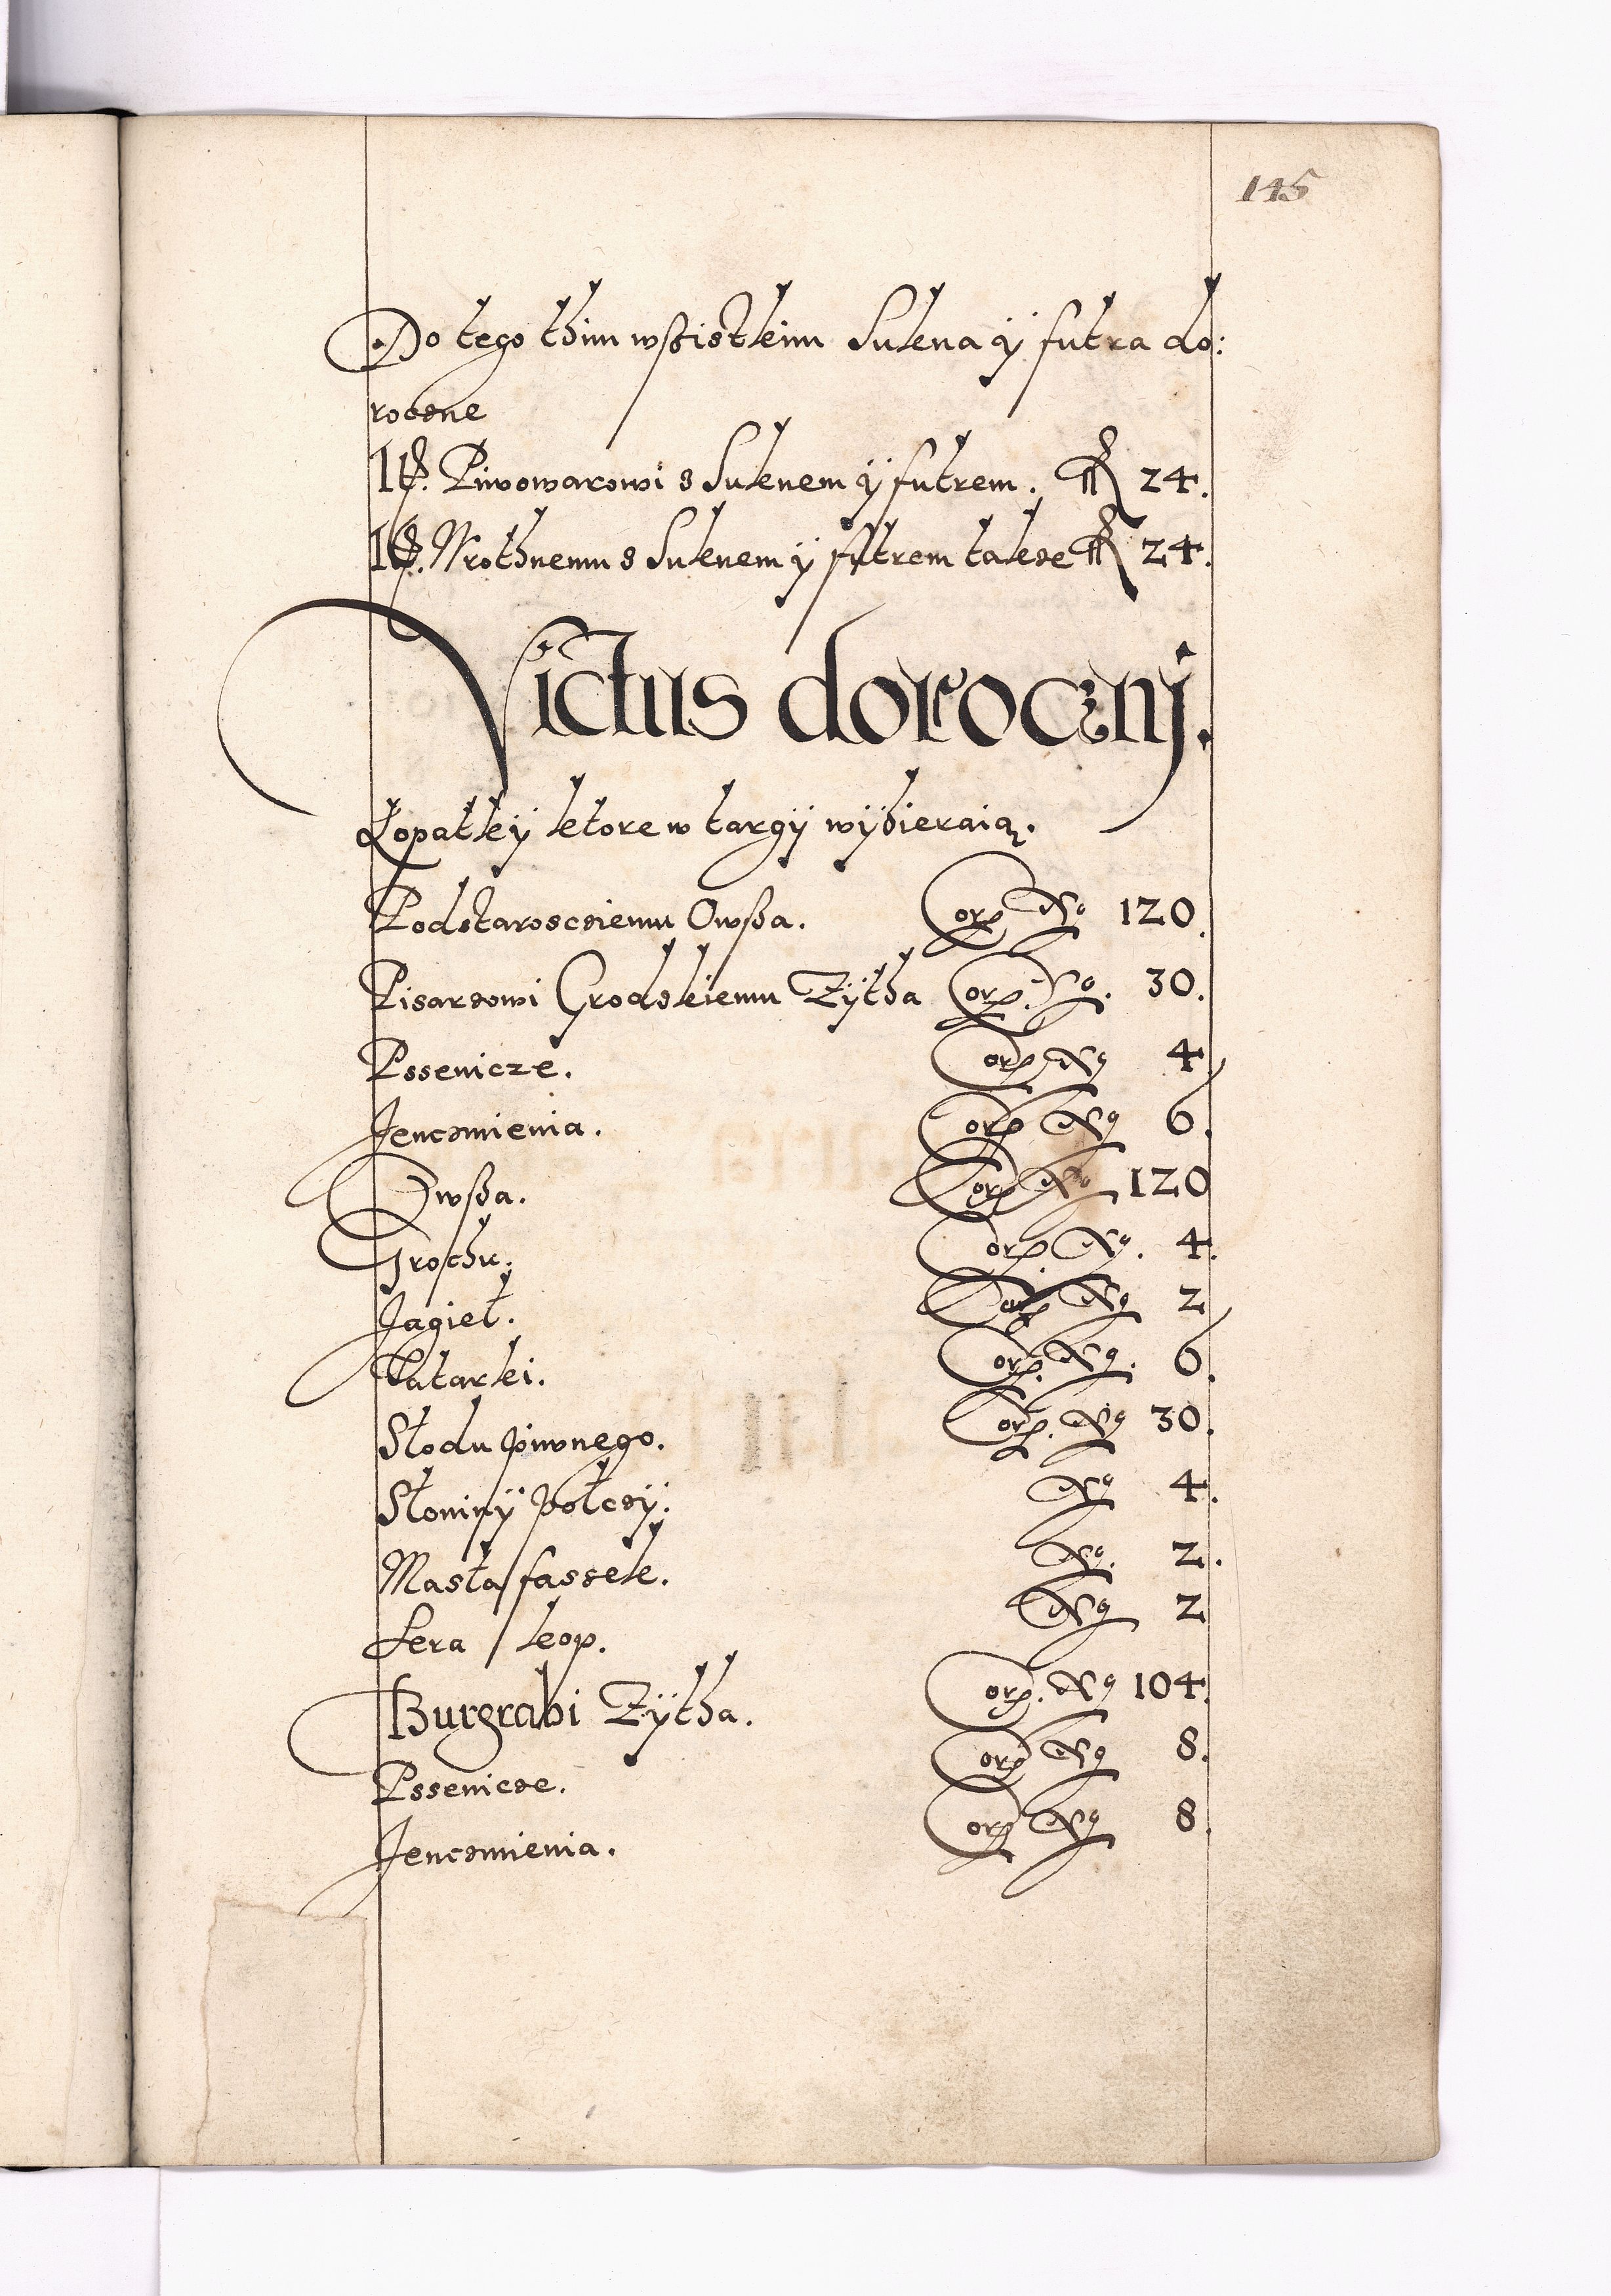 145
Do tego thim wßistkim Suknia ÿ futra do:
roczne
It. Piwowarowi z Suknem ÿ futrem. 24.
It. Wrothnemu z Suknem ÿ futrem takze 24.
Victus dorocznj.
Łopatkÿ ktore w targÿ wÿbieraią.
Podstaroscziemu Owßa. Cor. No 120.
Pisarzowi Grodskiemu Zÿtha Cor. No. 30.
Pssenicze. Cor. No 4
Jenczmienia. Cor. No 6.
Owßa. Cor. No 120
Grochu. Cor. No. 4.
Jagieł. Cor. No 2
Tatarki. Cor. No. 6.
Słodu piwnego. Cor. No 30.
Słoninÿ połczÿ. No 4.
Masła fassek. No. 2.
Sera kop. No 2
Burgrabi Zÿtha. Cor. No 104.
Pssenicze. Cor. No 8.
Jenczmienia. Cor. No 8.